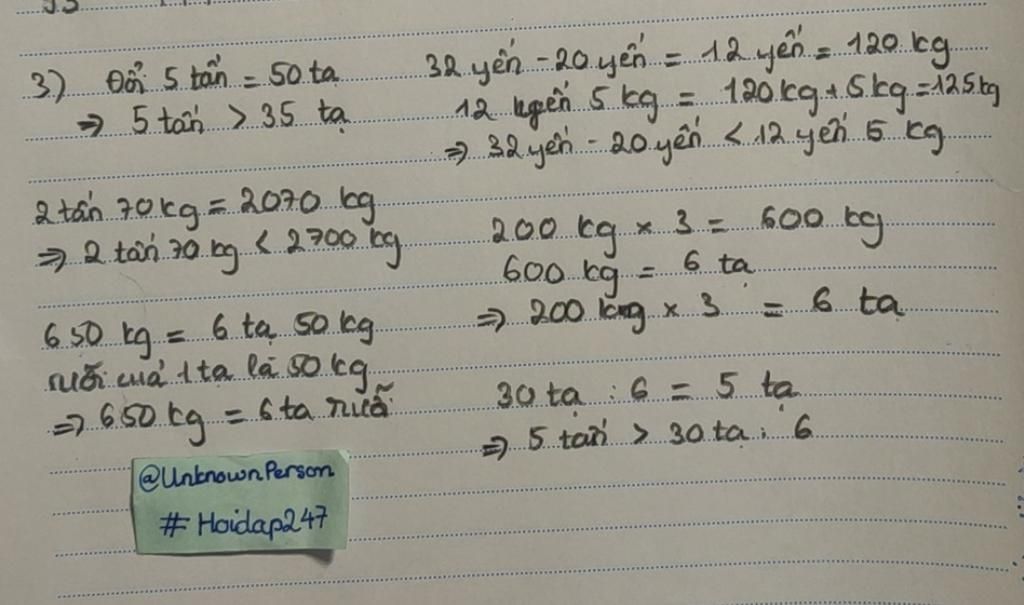 3) Đổi 5 tấn = 50 tạ
⇒ 5 tấn > 35 tạ
2 tấn 70 kg = 2070 kg
⇒ 2 tấn 70 kg < 2700 kg
650 kg = 6 tạ 50 kg
rưỡi của 1 tạ là 50 kg
⇒ 650 kg = 6 tạ rưỡi
32 yến - 20 yến = 12 yến = 120 kg
12 yến 5 kg = 120 kg + 5 kg = 125 kg
⇒ 32 yến - 20 yến < 12 yến 5 kg
200 kg × 3 = 600 kg
600 kg = 6 tạ
⇒ 200 kg × 3 = 6 tạ
30 tạ : 6 = 5 tạ
⇒ 5 tấn > 30 tạ : 6
@UnknownPerson
#Hoidap247